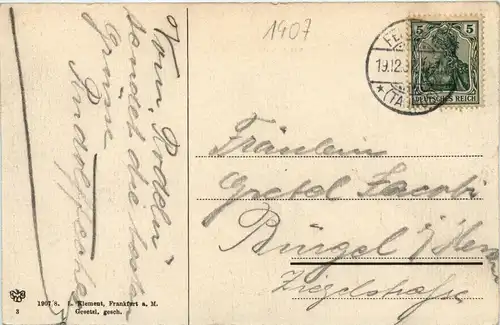 1907
Vom Rodeln
sendet die besten
Grüsse
5 5
DEUTSCHES REICH
19.12.
(TA
Fräulein
Gretel Jacobi
Bürgel
Ziegelstrasse
1907 8. Klement, Frankfurt a. M.
3 Gesetzl. gesch.